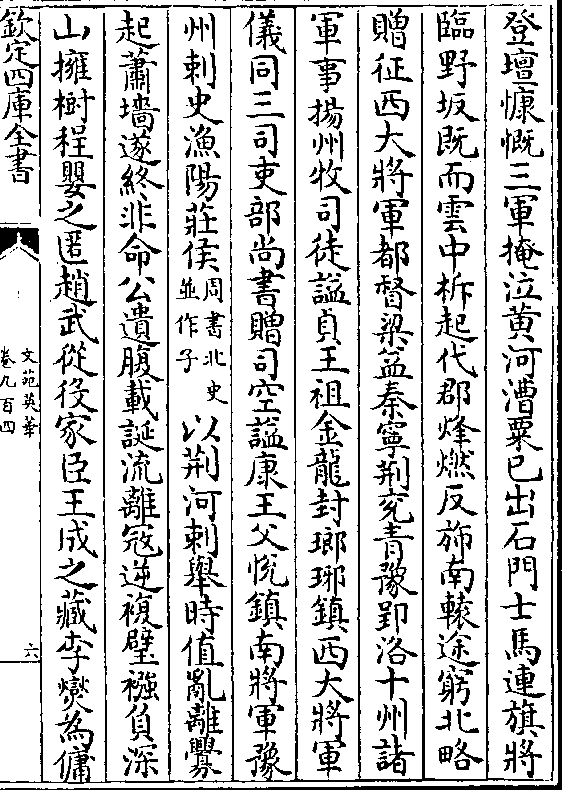 登壇慷慨三軍掩泣黄河漕粟已出石門士馬連旗將
臨野坂既而雲中柝起代郡烽燃反斾南轅途窮北略
贈征西大將軍都督梁益秦寧荆兖青豫郢洛十州諸
軍事揚州牧司徒諡貞王祖金龍封瑯琊鎮西大將軍
儀同三司吏部尚書贈司空諡康王父恱鎮南將軍豫
州刺史漁陽莊侯周書北史並作子以荆河刺舉時值亂離釁
起蕭墻遂終非命公遺腹載誕流離宼逆複璧襁負深
山擁樹程嬰之匿趙武從役家臣王成之藏李燮為傭
欽定四庫全書
文苑英華
卷九百四
六